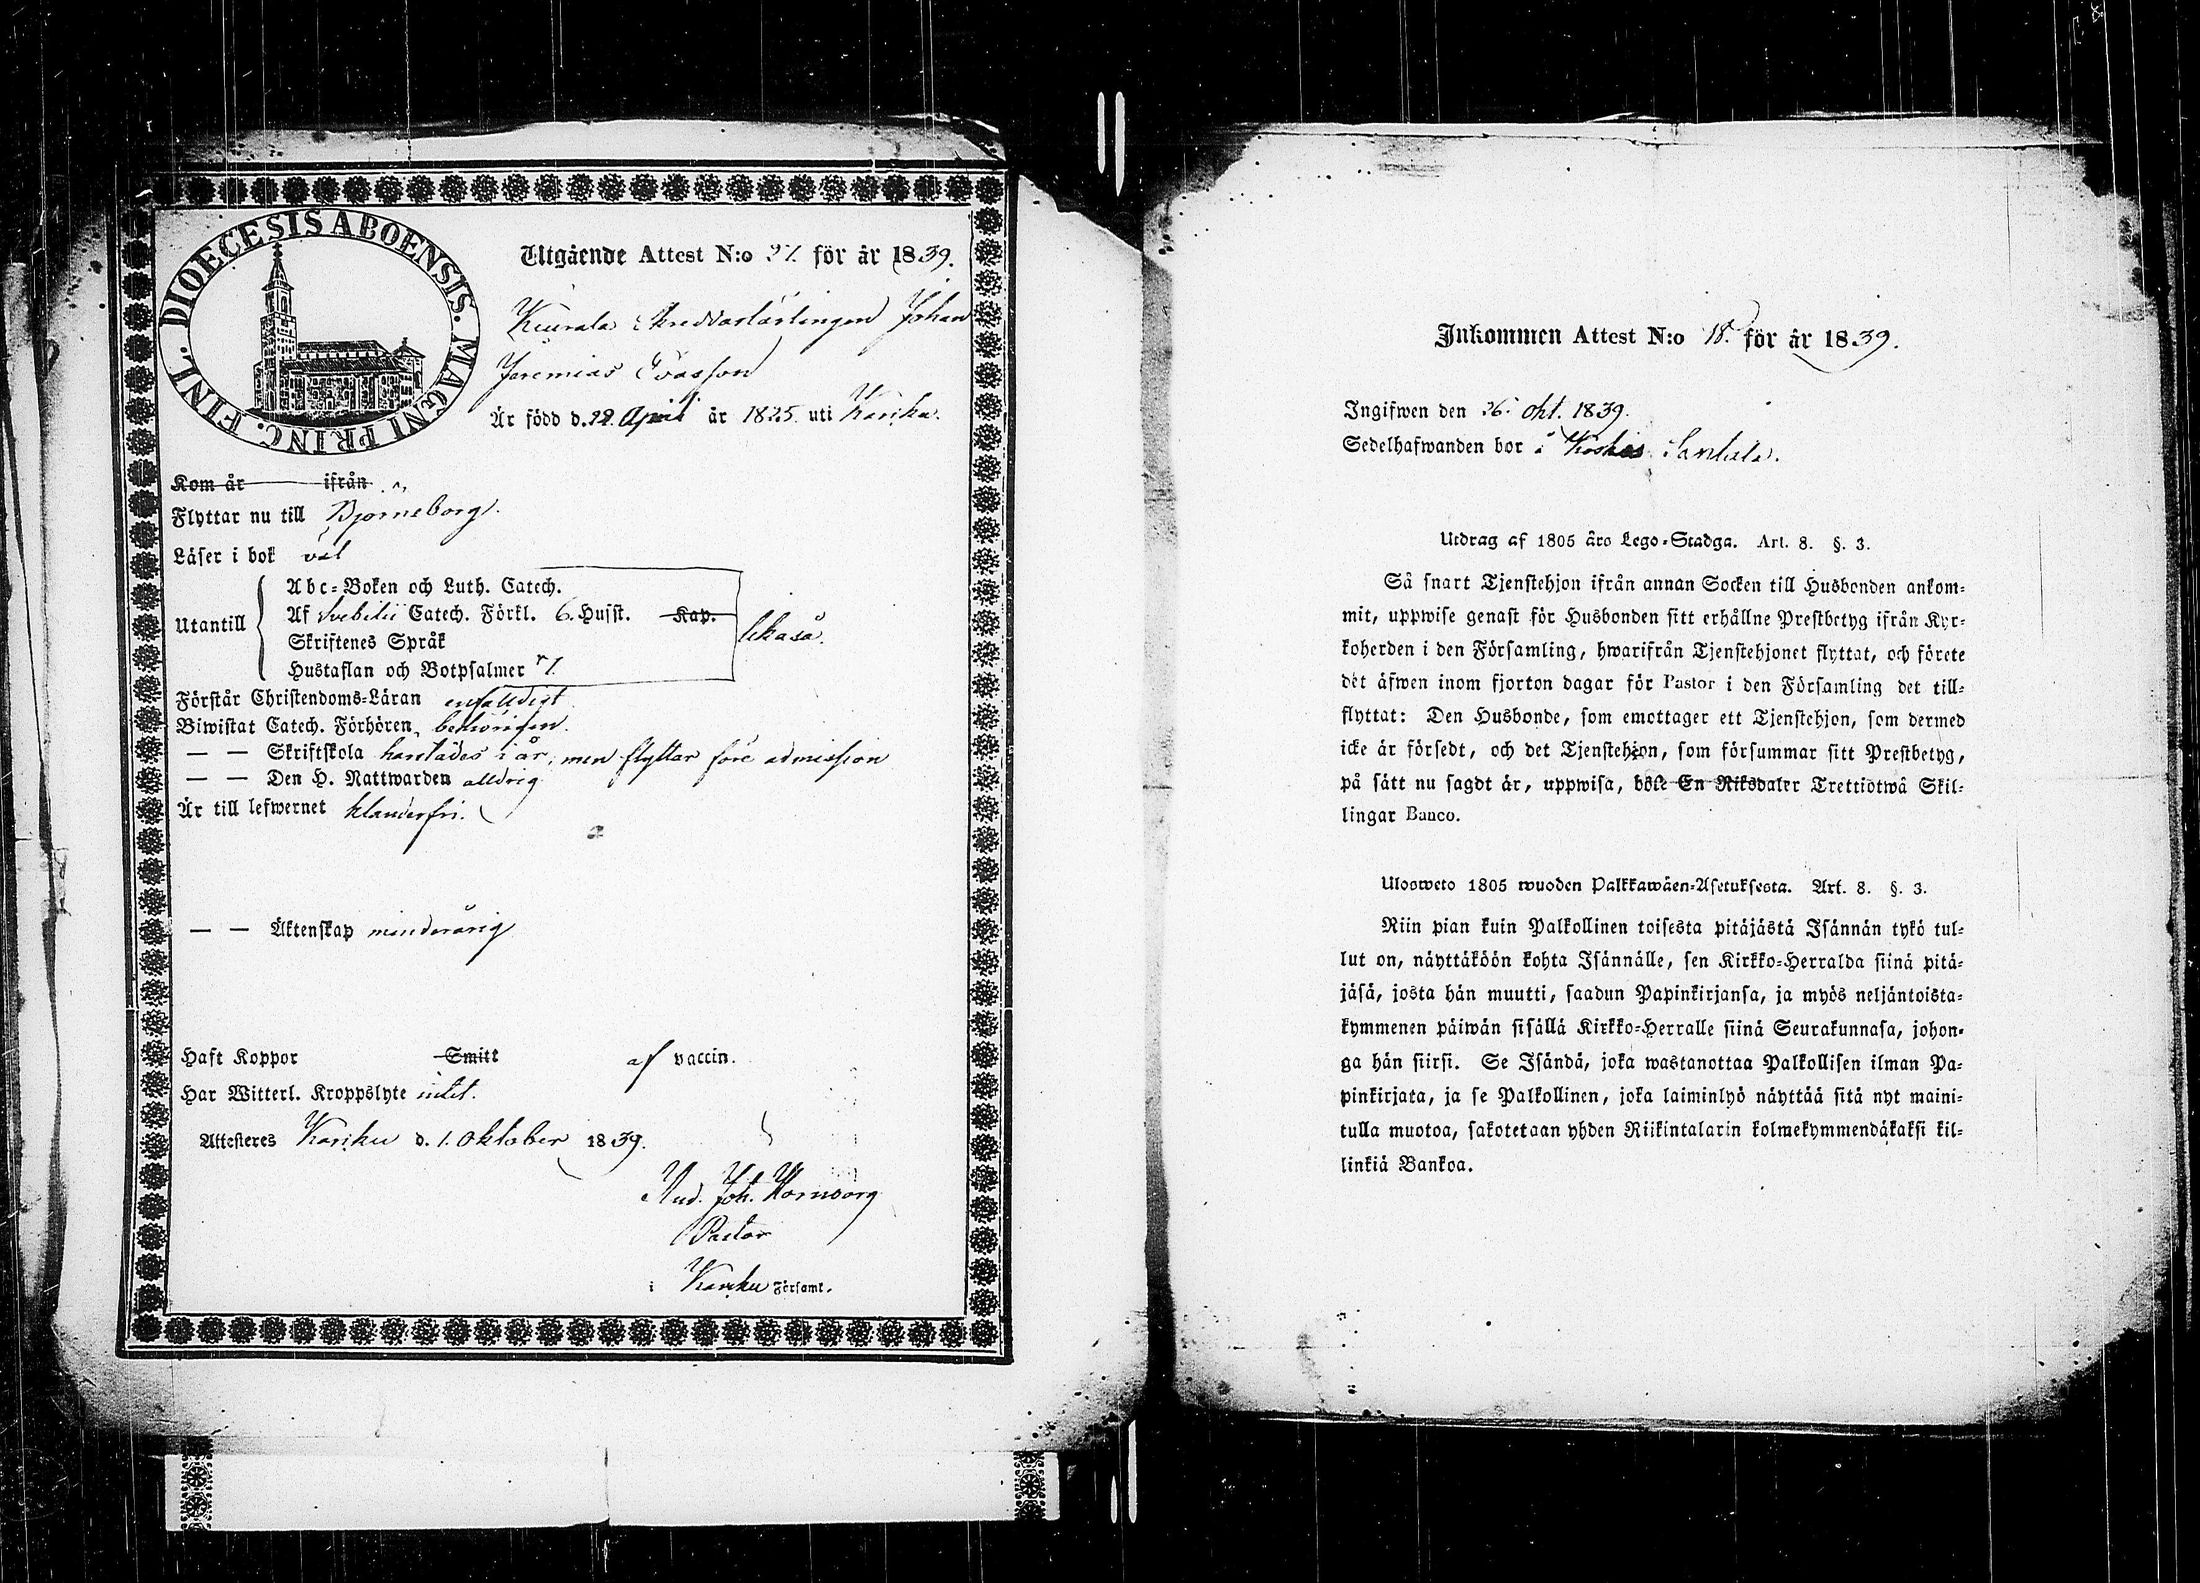 DIOECESIS ABOENSIS. MAGNI PRINC. FINL.
Utgående Attest N:o 37. för år 1839.
Skreddarlärlingen Johan
Jeremias Evasson
Är född d. 22. April år 1825. uti Karku.
Kom år ifrån
Flyttar nu till Björneborg.
Läser i bok väl
Utantill
Abc-Boken och Luth. Catech.
Af Svebilii Catech. Förkl. 6. Husst. Kap.
Skriftenes Språk
Hustaflan och Botpsalmer
likaså.
Förstår Christendoms-Läran enfalldigt
Biwistat Catech. Förhören behörigen.
— — Skriftskola i år, men flyttar före admission
— — Den H. Nattwarden alldrig
Är till lefwernet klanderfri.
— — Äktenskap minderårig
Haft Koppor Smitt af vaccin.
Har Witterl. Kroppslyte intet.
Attesteres Karku d. 1. Oktober 1839.
Joh.
Pastor
i Karku Församl.
Inkommen Attest N:o 18. för år 1839.
Ingifwen den 26. Okt. 1839.
Sedelhafwanden bor å
Utdrag af 1805 års Lego-Stadga. Art. 8. §. 3.
Så snart Tjenstehjon ifrån annan Socken till Husbonden ankom-
mit, uppwise genast för Husbonden sitt erhållne Prestbetyg ifrån Kyr-
koherden i den Församling, hwarifrån Tjenstehjonet flyttat, och förete
det äfwen inom fjorton dagar för Pastor i den Församling det till-
flyttat: Den Husbonde, som emottager ett Tjenstehjon, som dermed
icke är försedt, och det Tjenstehjon, som försummar sitt Prestbetyg,
på sätt nu sagdt är, uppwisa, böte En Riksdaler Trettiotwå Skil-
lingar Banco.
Ulosweto 1805 wuoden Palkkawäen-Asetuksesta. Art. 8. §. 3.
Niin pian kuin Palkollinen toisesta pitäjästä Isännän tykö tul-
lut on, näyttäköön kohta Isännälle, sen Kirkko-Herralda siinä pitä-
jäsä, josta hän muutti, saadun Papinkirjansa, ja myös neljäntoista-
kymmenen päiwän sisällä Kirkko-Herralle siinä Seurakunnasa, johon-
ga hän siirsi. Se Isändä, joka wastanottaa Palkollisen ilman Pa-
pinkirjata, ja se Palkollinen, joka laiminlyö näyttää sitä nyt maini-
tulla muotoa, sakotetaan yhden Riikintalarin kolmekymmendäkaksi kil-
linkiä Bankoa.